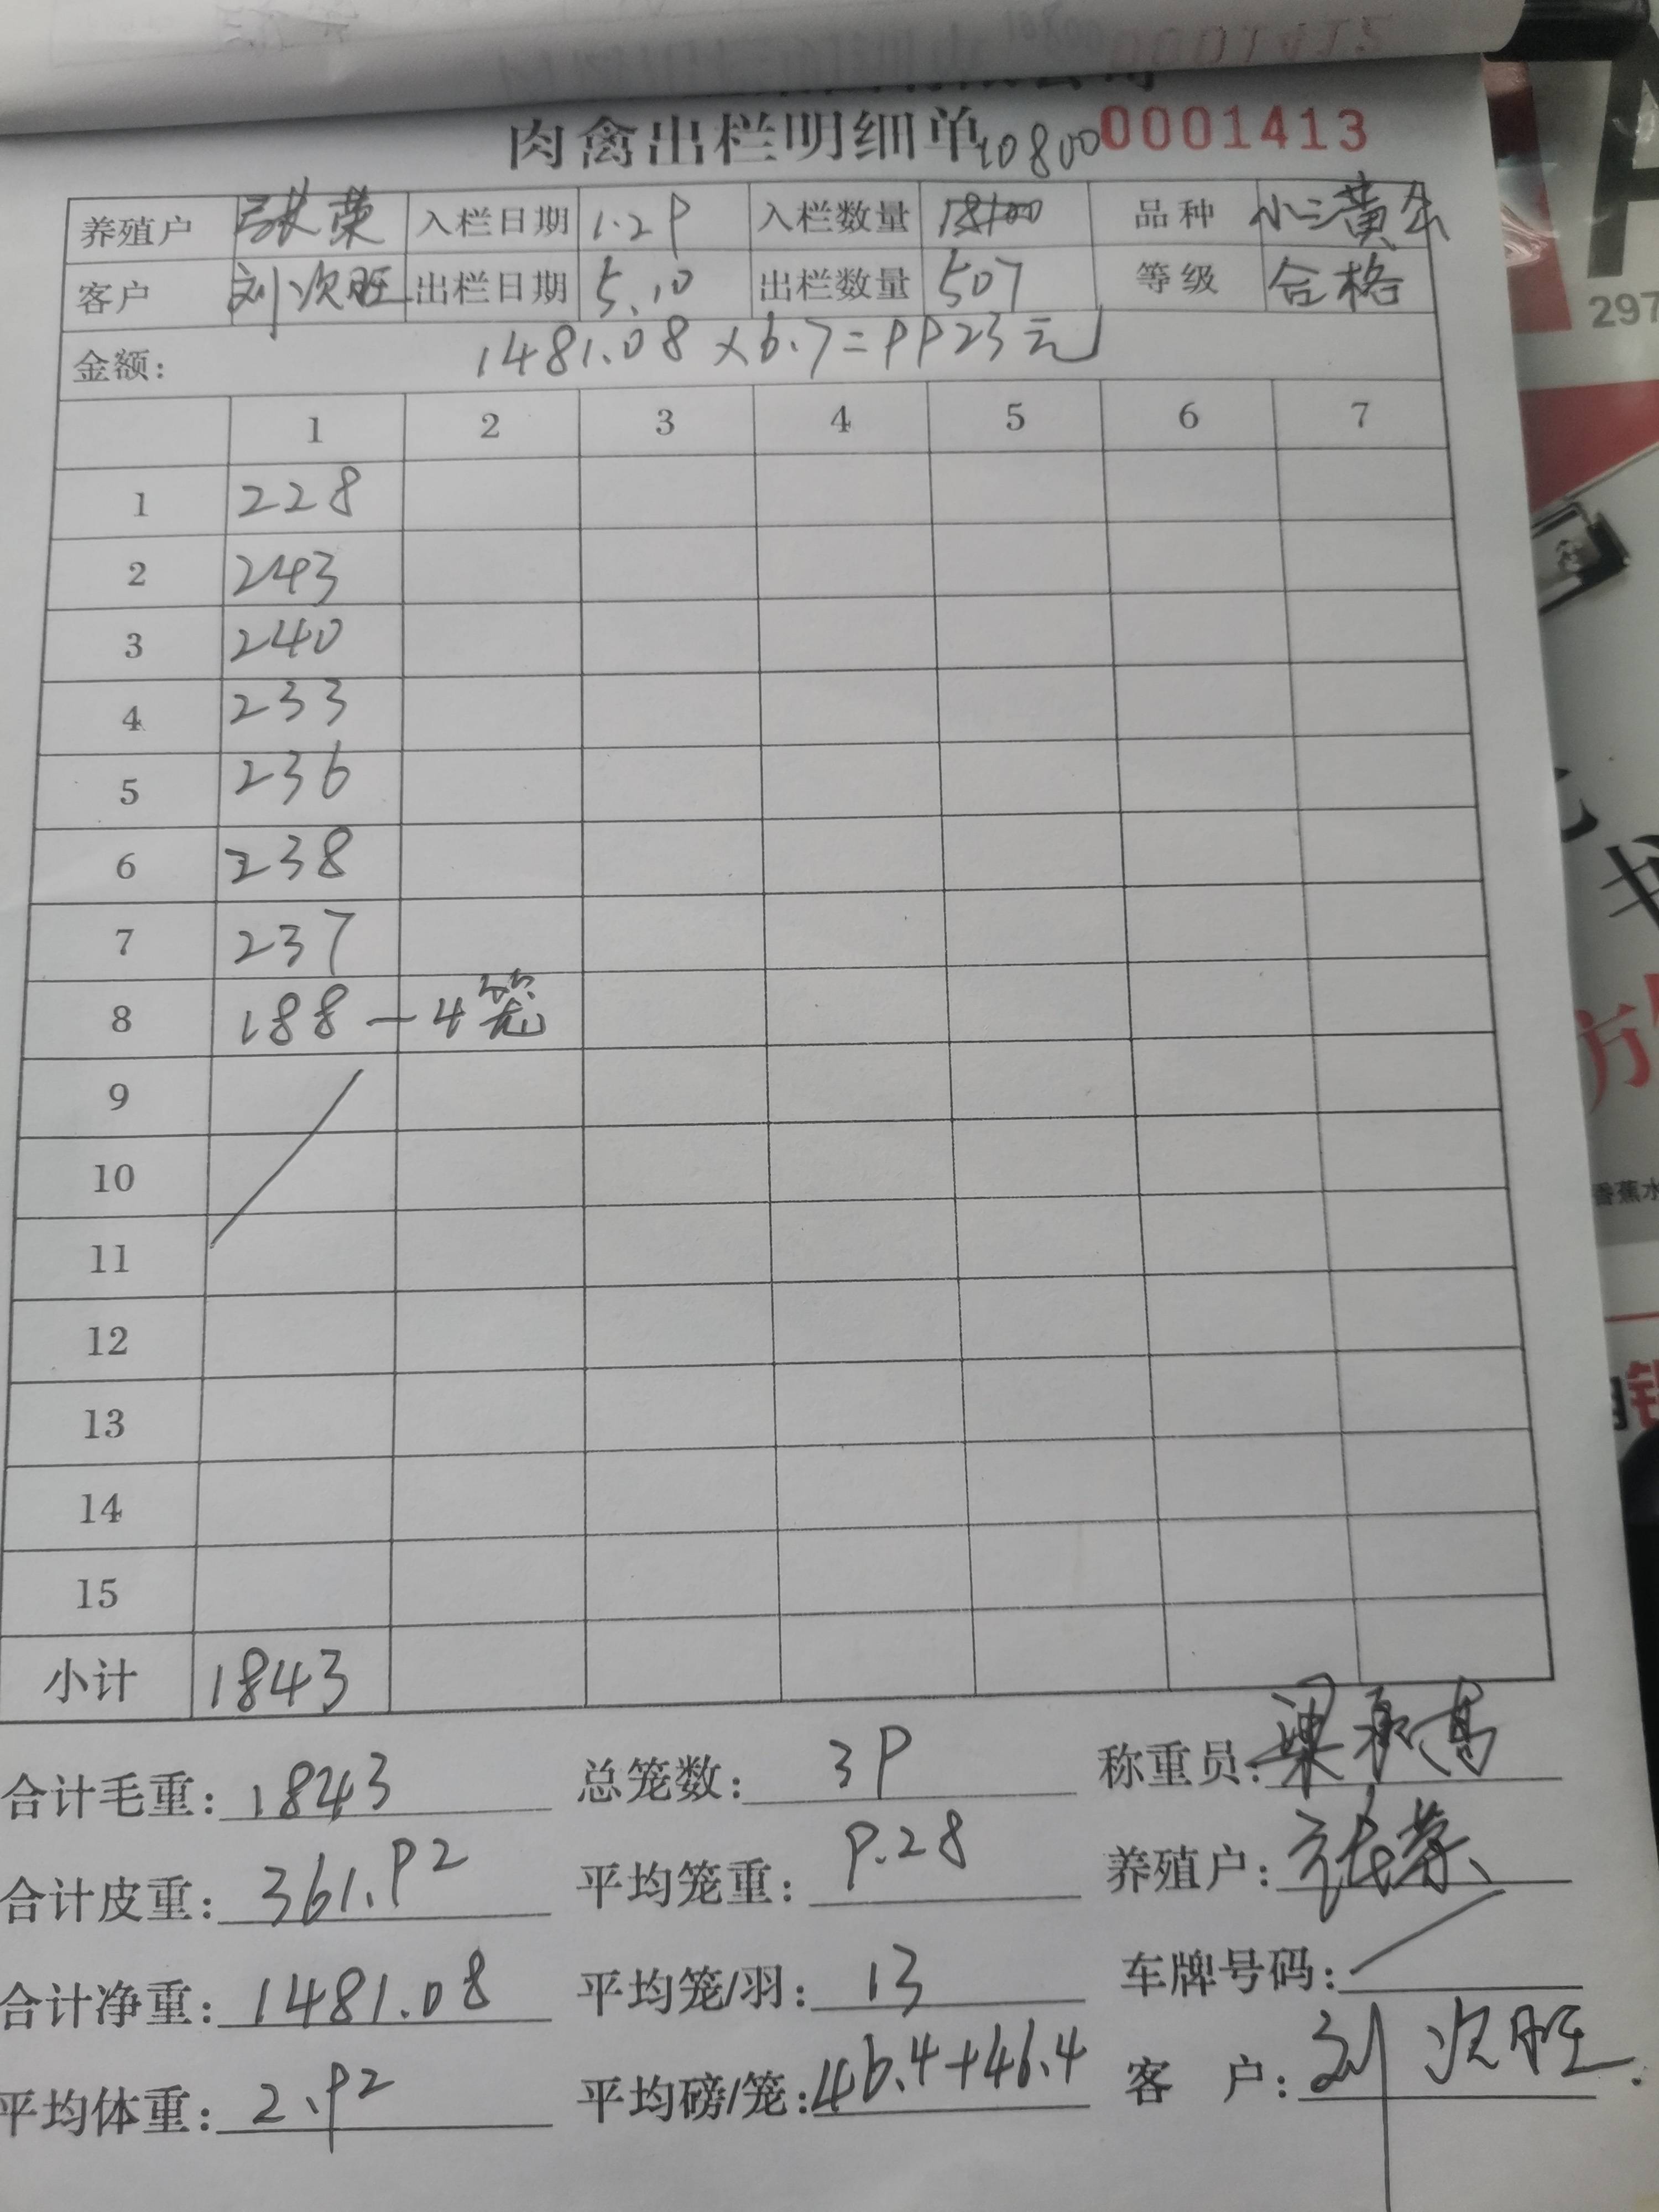 肉禽出栏明细单 10800 0001413
养殖户 张荣 入栏日期 1.29 入栏数量 18100 品种 小三黄
客户 刘次旺 出栏日期 5.10 出栏数量 507 等级 合格
金额: 1481.08×6.7=9923元
1 2 3 4 5 6 7
1 228
2 243
3 240
4 233
5 236
6 238
7 237
8 188—4笼
9
10
11
12
13
14
15
小计 1843
合计毛重: 1843 总笼数: 39 称重员:
合计皮重: 361.92 平均笼重: 9.28 养殖户: 张荣
合计净重: 1481.08 平均笼/羽: 13 车牌号码:
平均体重: 2.92 平均磅/笼: 46.4+46.4 客 户: 刘次旺
297
香蕉水